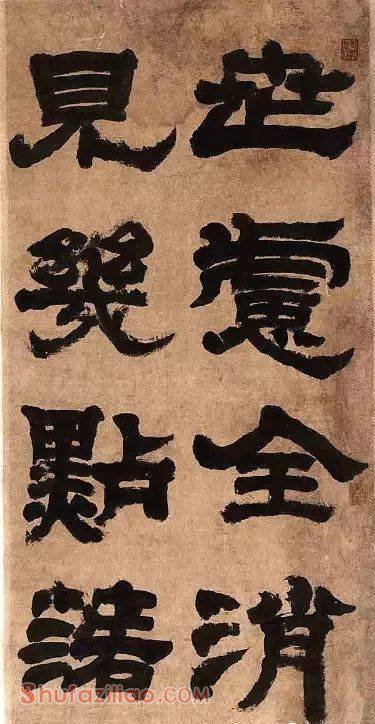 世慮全消
見幾點渚
Shufaziliao.com